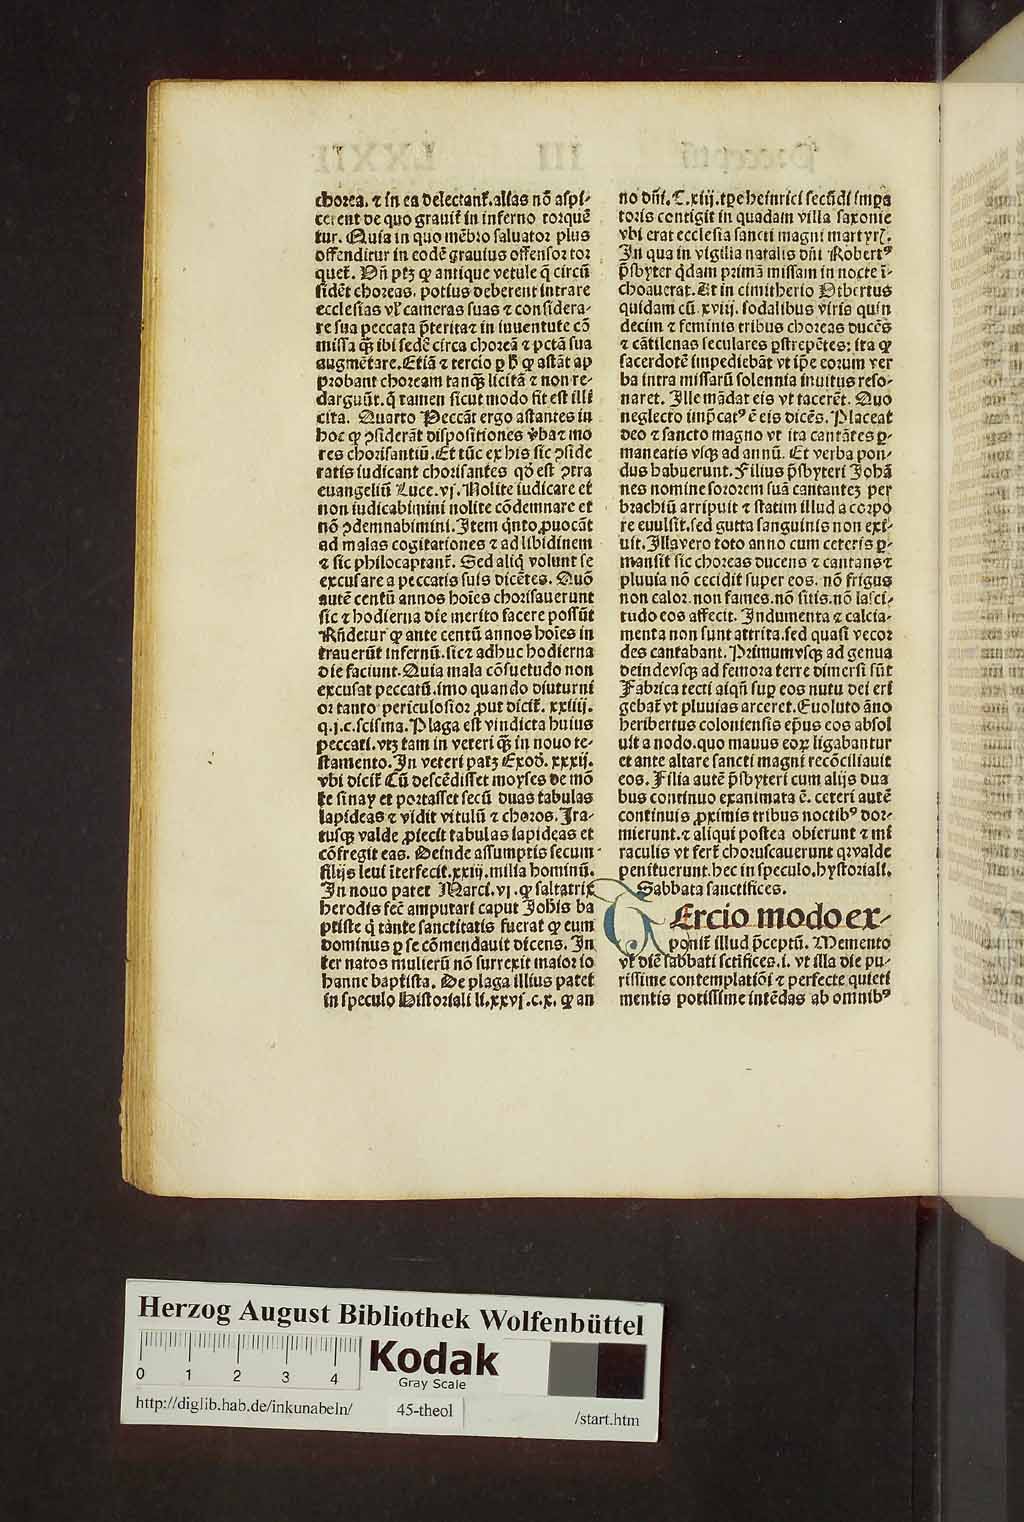 chorea. ⁊ in ea delectant᷑. alias nō aspi-
cerent de quo grauit᷑ in inferno torquē
tur. Quia in quo mēbro saluator plus
offenditur in eodē grauius offensor tor
quet᷑. Vn̄ ptꝫ ꝙ antique vetule q̄ circū
sidēt choreas. potius deberent intrare
ecclesias vl᷑ cameras suas ⁊ considera-
re sua peccata p̄terita ⁊ in iuuentute cō
missa q̄ꝫ ibi sedē circa choreā ⁊ pctā sua
augmētare. Etiā ⁊ tercio ꝑ ꝙ astāt ap
probant choream tanq̄ꝫ licitā ⁊ non re-
darguūt. q̄ tamen sicut modo fit est illi
cita. Quarto Peccāt ergo astantes in
hoc ꝙ ꝯsiderāt dispositiones v̄ba ⁊ mo
res chorisantiū. Et tūc ex his sic ꝯside
ratis iudicant chorisantes qd̄ est ꝯtra
euangeliū Luce. vj. Nolite iudicare et
non iudicabimini nolite cōdemnare et
nō ꝯdemnabimini. Item q̄nto ꝓuocāt
ad malas cogitationes ⁊ ad libidinem
⁊ sic philocaptant᷑. Sed aliq̄ volunt se
excusare a peccatis suis dicētes. Quō
autē centū annos hoīes chorisauerunt
sic ⁊ hodierna die merito facere possūt
Rn̄detur ꝙ ante centū annos hoīes in
trauerūt infernū. sic ⁊ adhuc hodierna
die faciunt. Quia mala cōsuetudo non
excusat peccatū. imo quando diuturni
or tanto periculosior ꝓut dicit᷑. xxiiij.
q. j. c. scisma. Plaga est vindicta huius
peccati. vtꝫ tam in veteri q̄ꝫ in nouo te-
stamento. In veteri patꝫ Exod̄. xxxij.
vbi dicit᷑ Cū descēdisset moyses de mō
te sinay et portasset secū duas tabulas
lapideas ⁊ vidit vitulū ⁊ choros. Ira-
tusqꝫ valde ꝓiecit tabulas lapideas et
cōfregit eas. Deinde assumptis secum
filijs leui īterfecit. xxiij. milia hominū.
In nouo patet Marci. vj. ꝙ saltatrix
herodis fec̄ amputari caput Joh̄is ba
ptiste q̄ tāte sanctitatis fuerat ꝙ eum
dominus ꝑ se cōmendauit dicens. In
ter natos mulierū nō surrexit maior io
hanne baptista. De plaga illius patet
in speculo Historiali li. xxvj. c. x. ꝙ an
no dn̄i. C. xiij. tꝑe heinrici secūdi impa
toris contigit in quadam villa saxonie
vbi erat ecclesia sancti magni martyrꝭ.
In qua in vigilia natalis dn̄i Robertꝰ
p̄sbyter q̄dam primā missam in nocte ī-
choauerat. Et in cimitherio Otbertus
quidam cū. xviij. sodalibus viris quin
decim ⁊ feminis tribus choreas ducēs
⁊ cātilenas seculares ꝑstrepētes: ita ꝙ
sacerdotē impediebāt vt ip̄e eorum ver
ba intra missarū solennia inuitus reso-
naret. Ille mādat eis vt tacerēt. Quo
neglecto imp̄catꝰ ē eis dicēs. Placeat
deo ⁊ sancto magno vt ita cantātes ꝑ-
maneatis vsqꝫ ad annū. Et verba pon-
dus habuerunt. Filius p̄sbyteri Johā
nes nomine sororem suā cantanteꝫ per
brachiū arripuit ⁊ statim illud a corpo
re euulsit. sed gutta sanguinis non exi-
uit. Illa vero toto anno cum ceteris ꝑ-
mansit sic choreas ducens ⁊ cantans ⁊
pluuia nō cecidit super eos. nō frigus
non calor. non fames. nō sitis. nō lassi-
tudo eos affecit. Indumenta ⁊ calcia-
menta non sunt attrita. sed quasi vecor
des cantabant. Primum vsqꝫ ad genua
deinde vsqꝫ ad femora terre dimersi sūt
Fabrica tecti aiqn̄ suꝑ eos nutu dei eri
gebat᷑ vt pluuias arceret. Euoluto āno
heribertus coloniensis ep̄us eos absol
uit a nodo. quo manus eoꝝ ligabantur
et ante altare sancti magni recōciliauit
eos. Filia autē p̄sbyteri cum alijs dua
bus continuo exanimata ē. ceteri autē
continuis ꝓximis tribus noctibꝰ dor-
mierunt. ⁊ aliqui postea obierunt ⁊ mi
raculis vt fert᷑ choruscauerunt qꝛ valde
penituerunt. hec in speculo. hystoriali.
Sabbata sanctifices.
TErcio modo ex-
ponit᷑ illud p̄ceptū. Memento
vt diē sabbati sctifices. i. vt illa die pu-
rissime contemplatiōi ⁊ perfecte quieti
mentis potissime intēdas ab omnibꝰ
Herzog August Bibliothek Wolfenbüttel
0 1 2 3 4
Kodak
Gray Scale
http://diglib.hab.de/inkunabeln/ 45-theol /start.htm